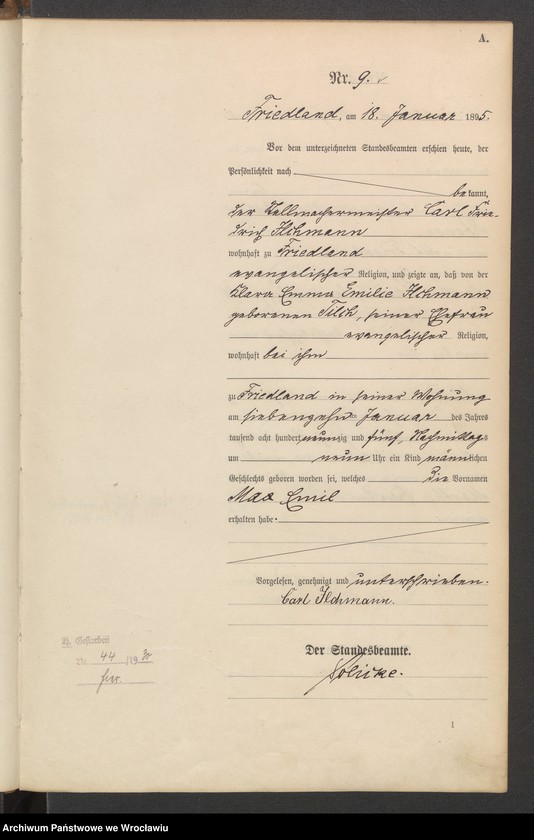 A.
Nr. 9.
Friedland, am 18. Januar 1895.
Vor dem unterzeichneten Standesbeamten erschien heute, der
Persönlichkeit nach
bekannt,
der Stellmachermeister Carl Frie-
drich Ilchmann
wohnhaft zu Friedland
evangelischer Religion, und zeigte an, daß von der
Klara Emma Emilie Ilchmann
geborenen Tilch, seiner Ehefrau
evangelischer Religion,
wohnhaft bei ihm
zu Friedland in seiner Wohnung
am siebenzehnten Januar des Jahres
tausend acht hundert neunzig und fünf, Nachmittags
um neun Uhr ein Kind männlichen
Geschlechts geboren worden sei, welches die Vornamen
Max Emil
erhalten habe.
Vorgelesen, genehmigt und unterschrieben.
Carl Ilchmann.
Der Standesbeamte.
44 /19
1
Archiwum Państwowe we Wrocławiu